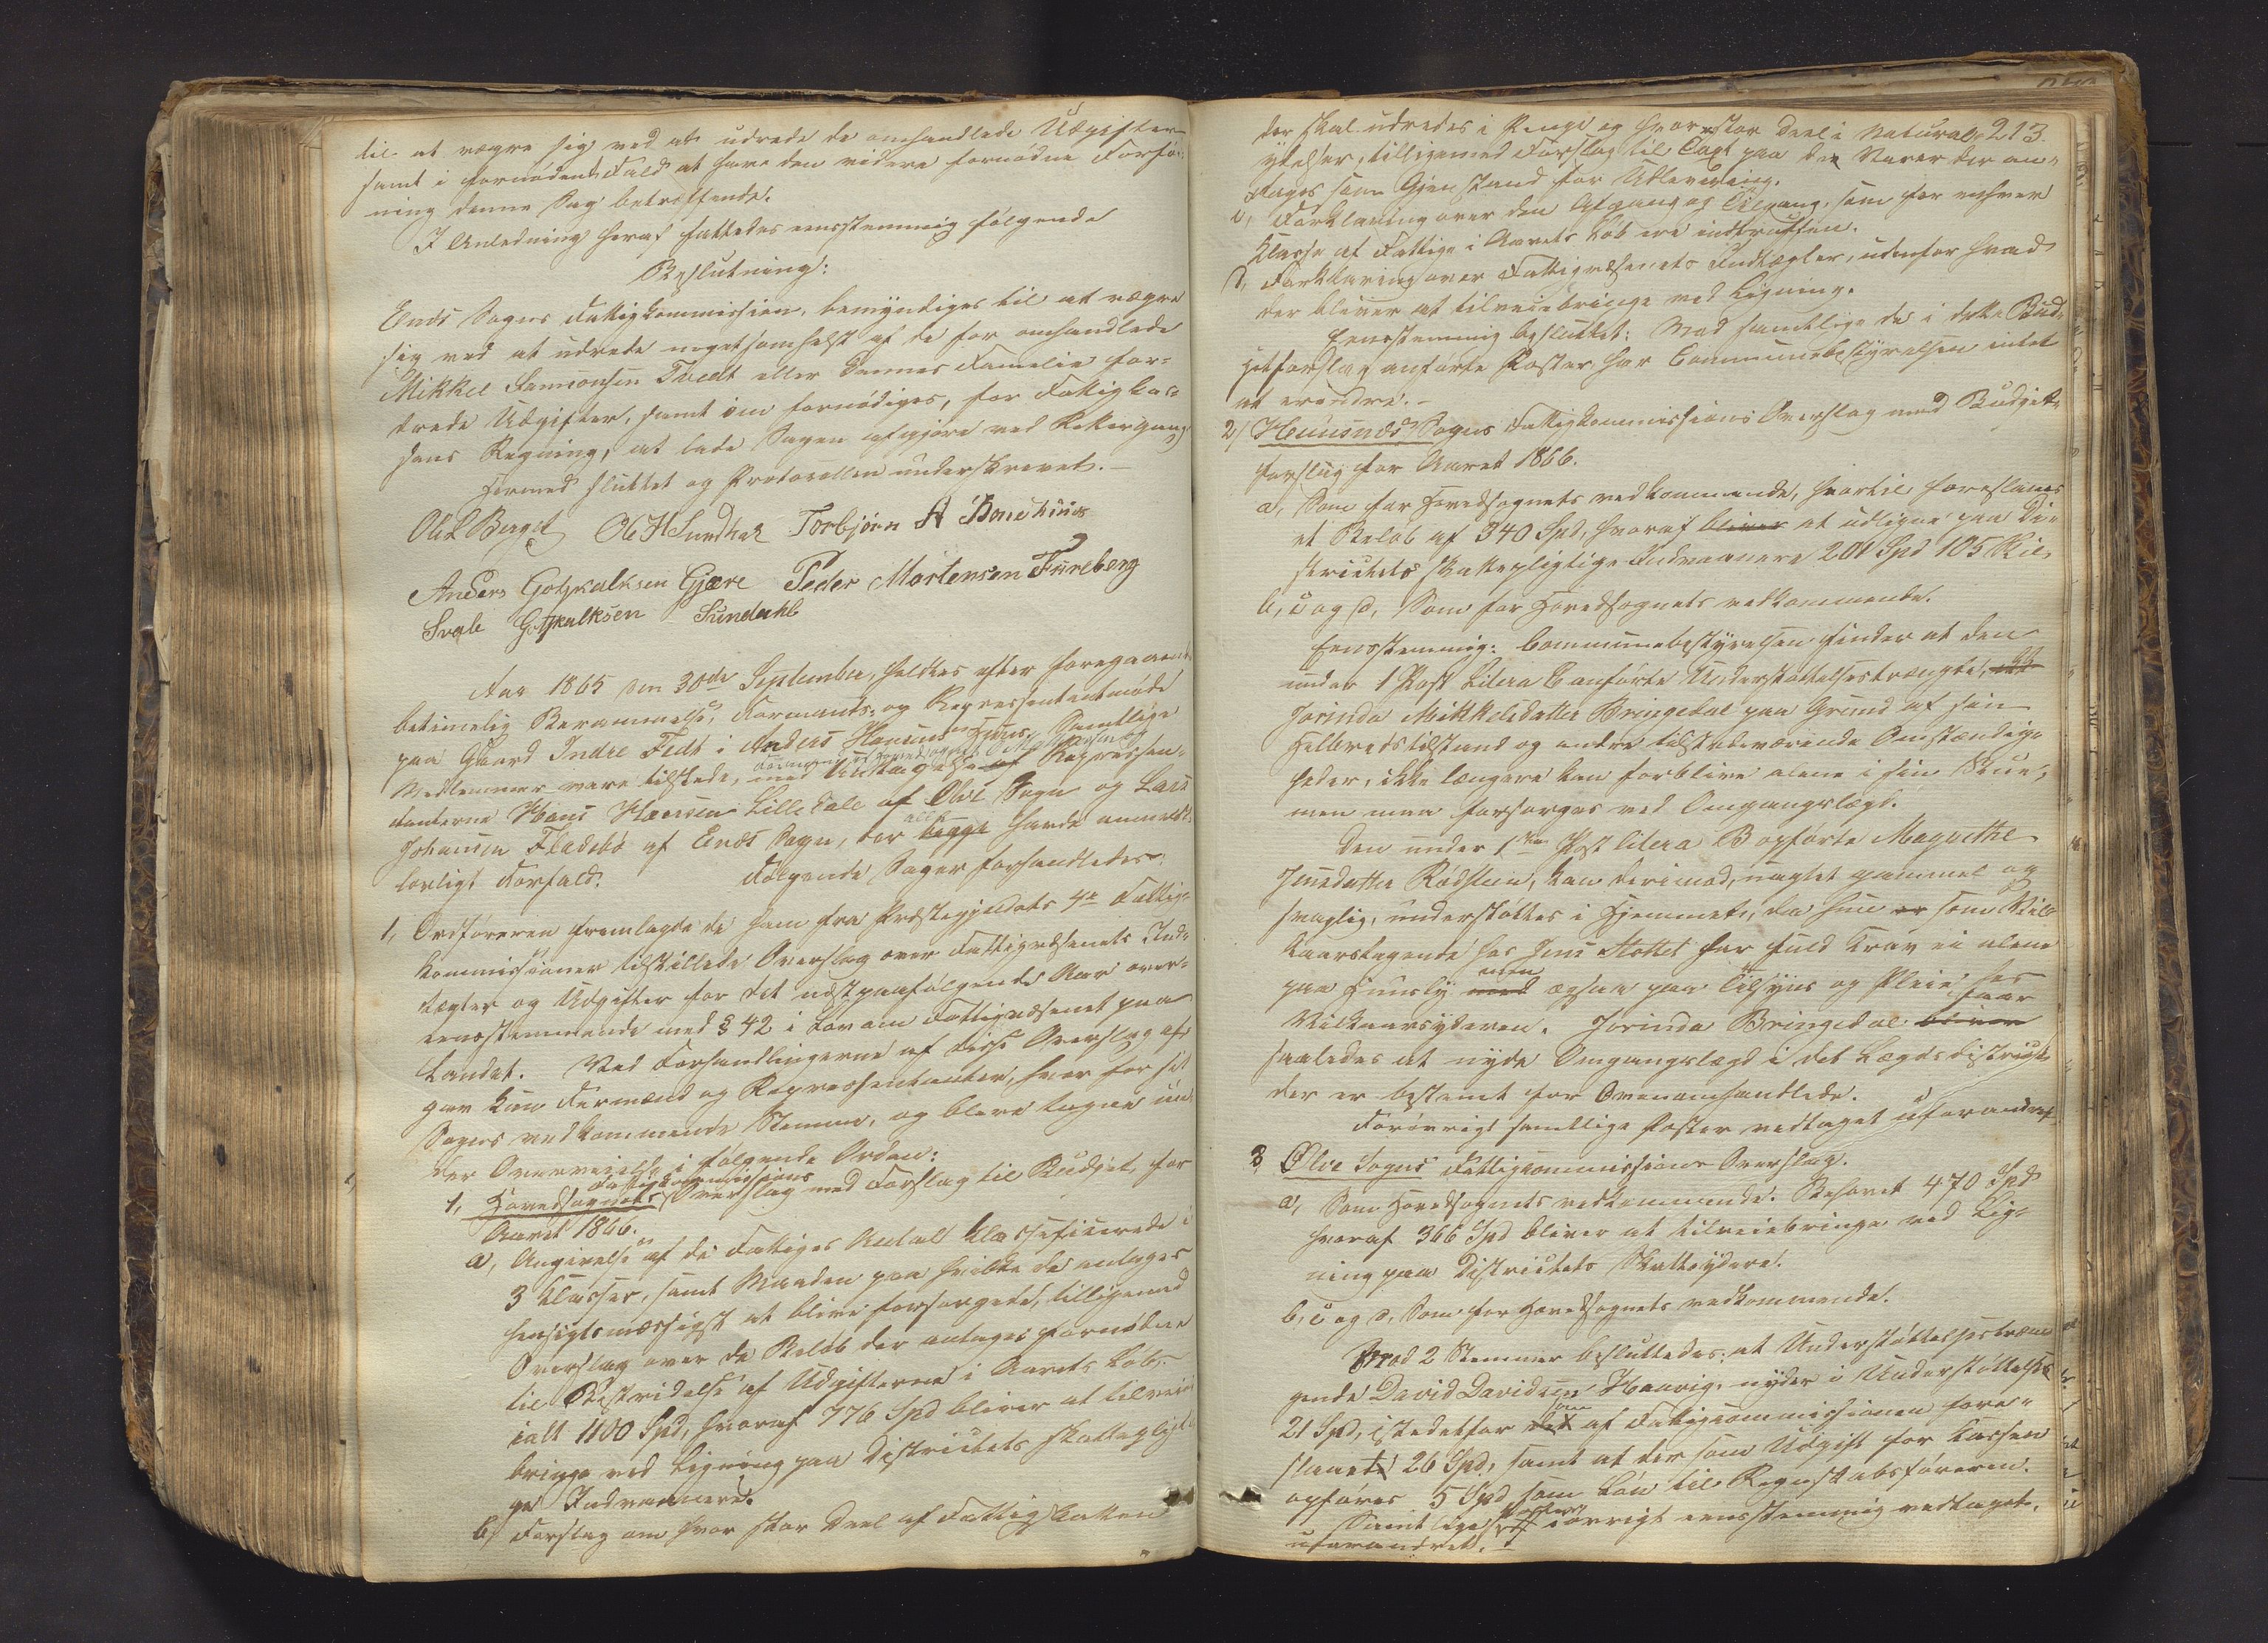 til at vægre sig ved at udrede de omhandlede Udgifter
samt i fornødent Fald at have den videre fornødne Forføi-
ning denne Sag betræffende.
I Anledning heraf fattedes eensstemmig følgende
Beslutning:
Enæs Sogns Fattigkommission, bemyndiges til at vægre
sig ved at udrede nogetsomhelst af de for omhandlede
Mikkel Samsonsen Tvedt eller dennes Familie for-
drede Udgifter, samt om fornødiges, for Fattigkas-
sens Regning, at lade Sagen afgjøre ved Rettergang
Hermed sluttet og Protocollen underskrevet.-
Ole L Berget Ole H Sundhal Torbjørn A Bonehuus
Anders Gotskalksen Gjære Peder Mortensen Fureberg
Svale Gotskalksen Sundahl
Aar 1865 den 30de September, holdtes efter foregaaende
betimelig Berammelse, Formands- og Repræsentantmøde
paa Gaard Indre Fedt i Anders Hansens Huus. Samtlige
Medlemmer vare tilstede, med Undtagelse af Repræsen-
tanterne Hans Hansen Lilledale af Ølve Sogn og Lars
Johannesen Fladebø af Enæs Sogn, der alle begge havde anmeldt
lovligt Forfald. Følgende Sager forhandledes:
1, Ordføreren fremlagde de ham fra Præstegjeldets 4re Fattig-
kommissioner tilstillede Overslag over Fattigvæsenets Ind-
tægter og Udgifter for det næstpaafølgende Aar over-
eensstemmende med § 42 i Lov om Fattigvæsenet paa
Landet. Ved Forhandlingerne af disse Overslag af-
gav kun Formænd og Repræsentanter, hver for sit
Sogns vedkommende Stemme, og bleve tagne un-
der Overveielse i følgende Orden:
1, Hovedsognets Fattigkommissions Overslag med Forslag til Budjet for
Aaret 1866.
a, Angivelse af de Fattiges Antal klassificerede i
3 Klasser, samt Maaden paa hvilke de antages
hensigtsmæssigst at blive forsørgede, tilligemed
Overslag over de Beløb der antages fornødne
til Bestridelse af Udgifterne i Aarets Løb,
ialt 1100 Spd, hvoraf 776 Spd bliver at tilveie
bringe ved Ligning paa Districtets skattepligti-
ge Indvaanere.
b, Forslag om hvor stor Deel af Fattigskatten
213.
der skal udredes i Penge og hvor stor Deel i Natural-
ydelser, tilligemed Forslag til Taxt paa de Varer der an-
tages som Gjenstand for Udlevering.
c, Forklaring over den Afgang og Tilgang, som for enhver
Klasse af Fattige i Aarets Løb ere indtruffen.
d, Forklaring over Fattigvæsenets Indtægter, udenfor hvad
der bliver at tilveiebringe ved Ligning.
Eensstemmig besluttet: Mod samtlige de i dette Bud-
jetforslag anførte Poster har Communebestyrelsen intet
at erindre.-
2, Huusnæs Sogns Fattigkommissions Overslag med Budjet-
forslag for Aaret 1866.
a, Som for Hovedsognets vedkommende, hvortil foreslaaes
et Beløb af 340 Spd, hvoraf bliver at udligne paa Di-
strictets skattepligtige Indvaanere 201 Spd 105 Skil.
b, c og d, Som for Hovedsognets vedkommende.
Eensstemmig: Communebestyrelsen finder at den
under 1 Post Litera B anførte Understøttelsestrængte,
Jorinda Mikkelsdatter Bringedal paa Grund af sin
Helbredstilstand og andre tilstedeværende Omstændig-
heder, ikke længere kan forblive alene i sin Stue,
men maa forsørges ved Omgangslægd.
Den under 1ste Post litera B opførte Magrethe
Jensdatter Rødsteen, kan derimod, uagtet gammel og
svaglig, understøttes i Hjemmet, da hun er som Vil-
kaarstagende hos Jens Stottet har fuld Krav ei alene
paa Huusly men ogsaa paa Tilsyns og Pleie hos
Vilkaarsyderen. Jorinda Bringedal bliver faar
saaledes at nyde Omgangslægd i det Lægdsdistrict
der er bestemt for Ovenomhandlede.
Forøvrigt samtlige Poster vedtaget uforandret
3, Ølve Sogns Fattigcommissions Overslag.
a, Som Hovedsognets vedkommende. Behovet 470 Spd
hvoraf 366 Spd bliver at tilveiebringe ved Lig-
ning paa Districtets Skatteydere.
b, c og d, Som for Hovedsognets vedkommende.
Mod 2 Stemmer besluttedes: at Understøttelsestræn-
gende David Davidsen Haavig, nyder i Understøttelse
21 Spd, istedetfor det som af Fattigcommissionen fore-
slaaet 26 Spd, samt at der som Udgift for Kassen
opføres 5 Spd som Løn til Regnskabsføreren.
Samtlige Poster iøvrigt eensstemmig vedtaget
uforandret.